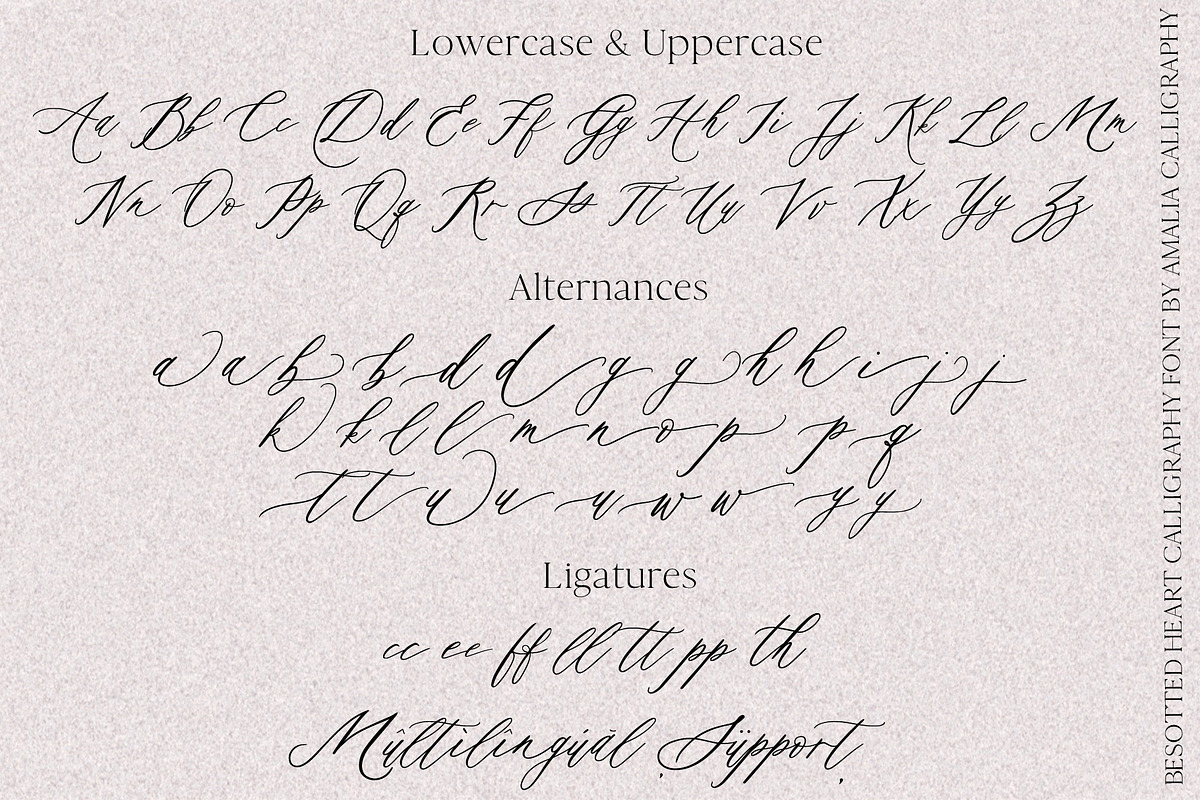 Lowercase & Uppercase
Aa Bb Cc Dd Ee Ff Gg Hh Ii Jj Kk Ll Mm
Nn Oo Pp Qq Rr Ss Tt Uu Vv Xx Yy Zz
Alternances
a a b b d d g g h h i j j
k k l l m n o p p q
t t u u u w w y y
Ligatures
cc ee ff ll tt pp th
Mûltïlîngúãl Şüpporţ
BESOTTED HEART CALLIGRAPHY FONT BY AMALIA CALLIGRAPHY